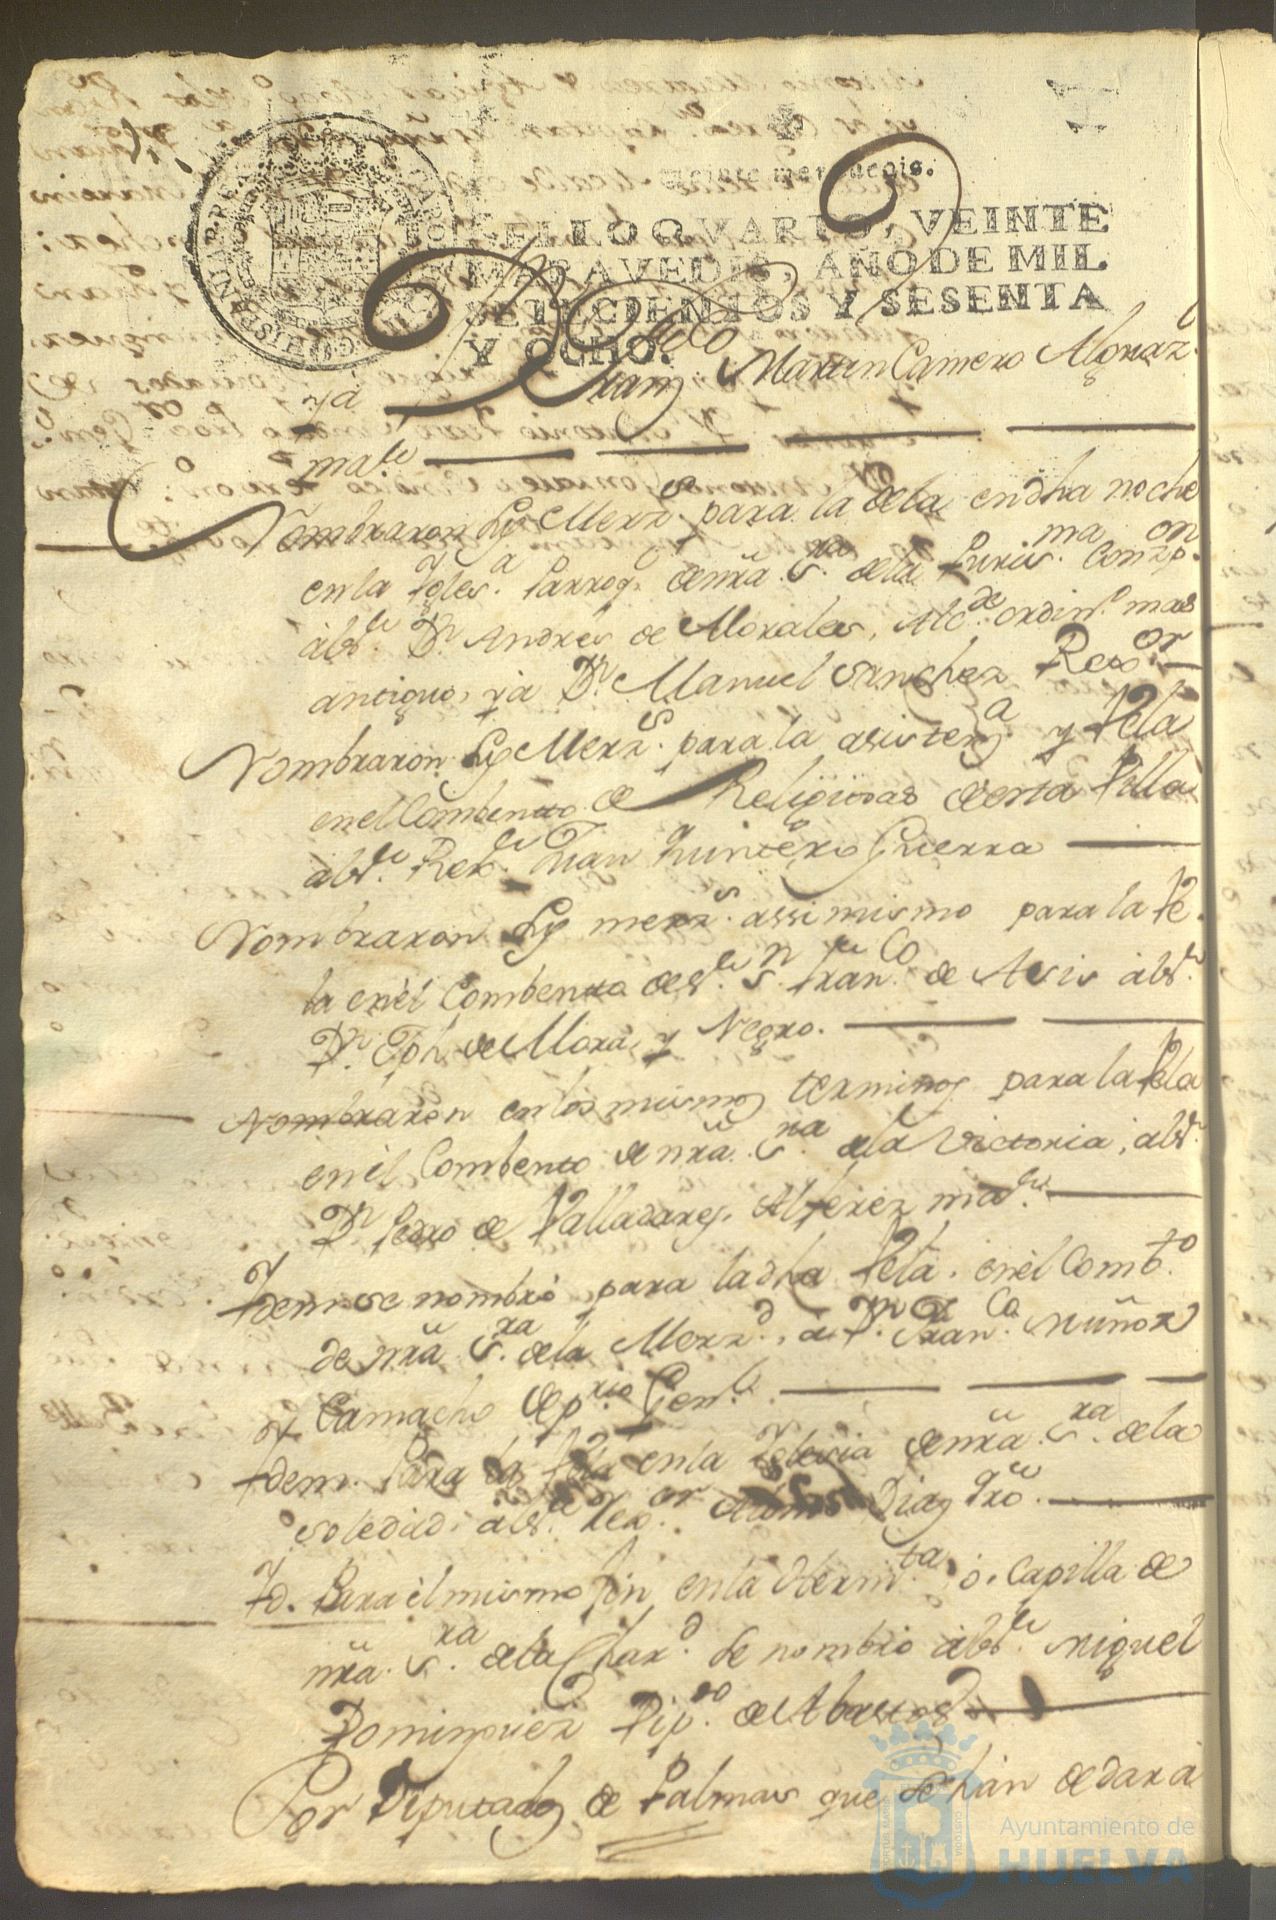 Veinte maravedis.
SELLO QVARTO, VEINTE
MARAVEDIS, AÑO DE MIL
SETECIENTOS Y SESENTA
Y OCHO.
ya Fran.co Martin Camero Alguaz.l
ma.or
Nombraron Ss Merz.s para la Vela en dha noche
en la Igles.a Parroq.l de nrã. S.ra dela Puris.ma Conzp.on
à el S.r Dn Andrés de Morales, Alc.de ordin.o mas
antiguo, y à Dn Manuel Sanchez Rex.or
Nombraron Ss Merz.s para la asisten.a y Vela
en el Combento de Religiosas de esta Villa
Juan Quintero Guerra
Nombraron Ss merz.s assimismo para la Ve
la en èl Combento de S.n Fran.co de Asis
Dn Jph de Mora, y Negro.
Nombraron en los mismos terminos para la Vela
en èl Combento de nrã. S.ra dela Victoria,
Dn Pedro de Valladares, Alferez ma.or
Idem se nombrò para la dha Vela. en èl Comb.to
de nrã. S.ra dela Merz.d, à Dn Fran.co Muñoz
Camacho Gen.l
Idem. Para la Vela en la Iglesia de nrã. S.ra dela
Soledad, Rex.or Alonso Diaz
Id. Para èl mismo fin en la Hermi.ta, ò. Capilla de
nrã. S.ra dela Char.d se nombrò Miguel
Dominguez Dip.do de Abastos
Por Diputados de Palmas que se hàn de dar à
Ayuntamiento de
HUELVA